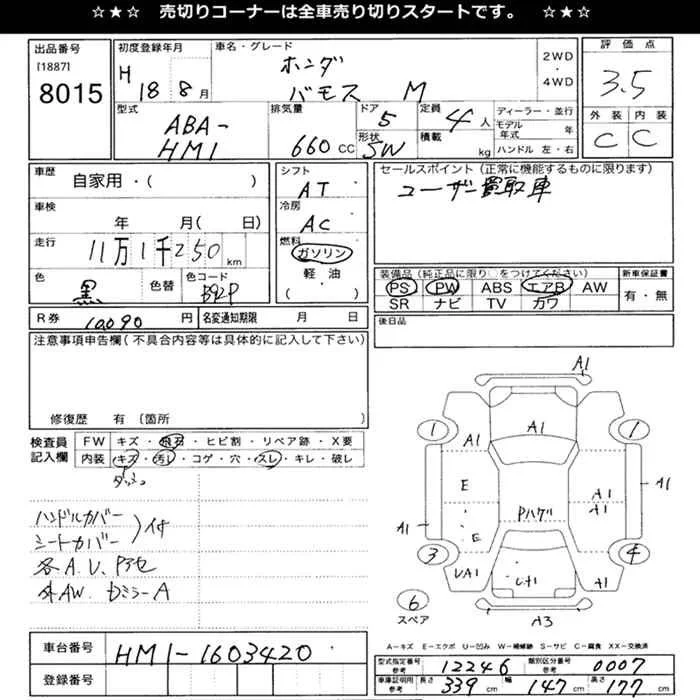 ☆★☆ 売切りコーナーは全車売り切りスタートです。 ☆★☆
出品番号 [1887] 8015
初度登録年月 H 18 8月
車名・グレード ホンダ バモス M
2WD ・ 4WD
評価点 3.5
外装 内装
C C
型式 ABA-HM1
排気量 660 CC
ドア 5
形状 SW
定員 4人
積載 kg
ディーラー・並行
モデル年式 年
ハンドル 左・右
車歴 自家用・( )
車検 年 月( 日)
走行 11万1千250 km
色 黒 色替
色コード B92P
シフト AT
冷房 AC
燃料 ガソリン
軽油
( )
セールスポイント(正常に機能するものに限ります)
ユーザー買取車
装備品(純正品に限り○をつけてください) 新車保証書
PS PW ABS エアB AW 有・無
SR ナビ TV カワ
R券 10,090 円 名変通知期限 月 日
後日品
注意事項申告欄(不具合内容等は具体的に記入して下さい)
修復歴 有 〔箇所
検査員記入欄
FW キズ・飛石・ヒビ割・リペア跡・X要
内装 キズ・汚レ・コゲ・穴・スレ・キレ・破レ
ダッシュ
ハンドルカバー
シートカバー
イサ
各A.U.Pアセ
外AW. DミラーA
A1
1 A1 A1 1
E Pハゲ A1
A1
A1 E A1
3 UA1 UA1 A1 4
6 スペア A3
A-キズ E-エクボ U-凹み W-補修跡 S-サビ C-腐食 XX-交換済
車台番号 HM1-1603420
登録番号
型式指定番号 参考 12246 類別区分番号 参考 0007
車庫証明用 参考 長さ 339 cm 幅 147 cm 高さ 177 cm